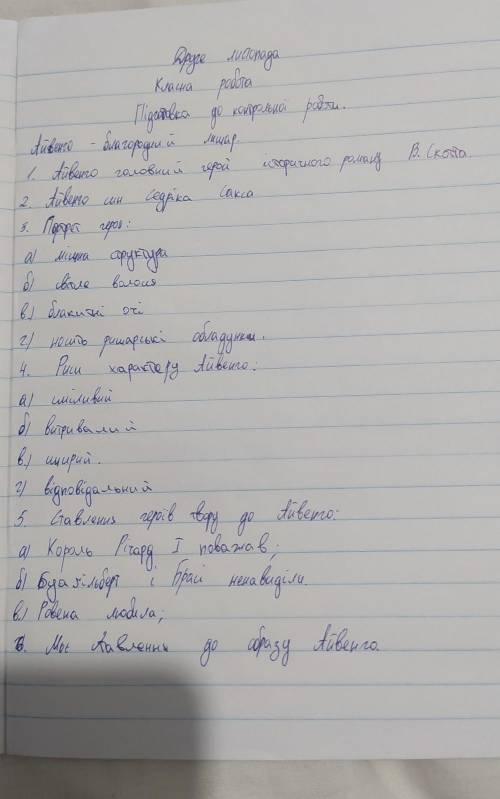 Друге листопада
Класна робота
Підготовка до контрольної роботи.
Айвенго - благородний лицар.
1. Айвенго головний герой історичного роману В. Скотта.
2. Айвенго син Седріка Сакса
3. Портрет героя:
а) міцна структура
б) світле волосся
в) блакитні очі
г) носить рицарські обладунки.
4. Риси характеру Айвенго:
а) сміливий
б) витривалий
в) щирий.
г) відповідальний
5. Ставлення героїв твору до Айвенго:
а) Король Річард I поважав;
б) Буагільберт і Брасі ненавиділи.
в) Ровена любила;
6. Моє ставлення до образу Айвенго.